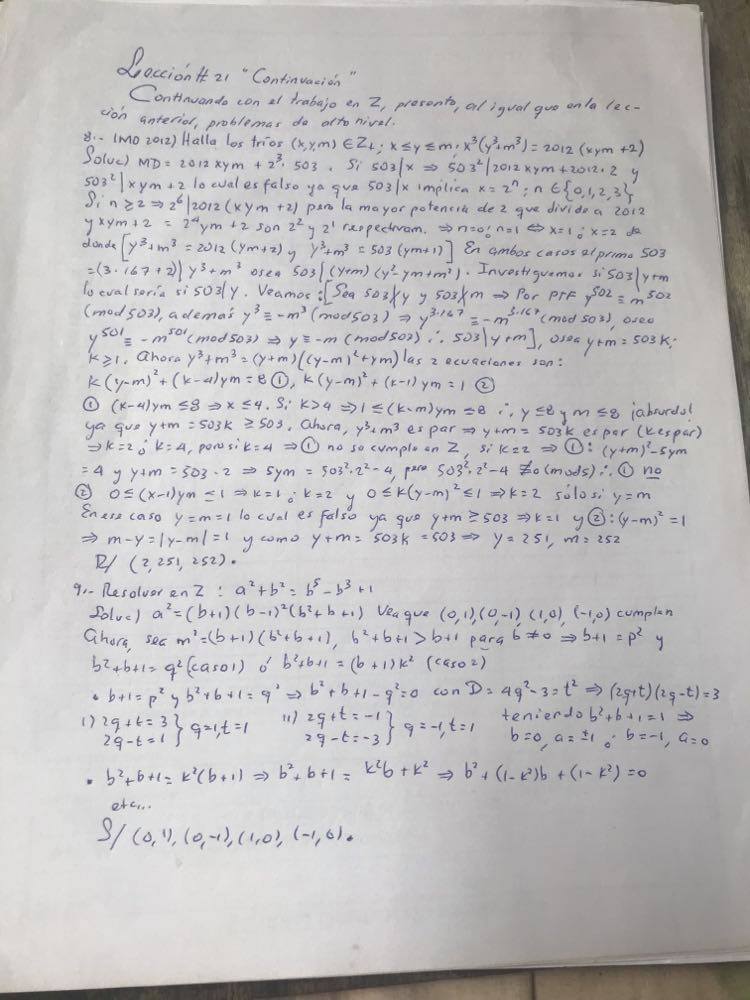 Lección # 21 "Continuación"
Continuando con el trabajo en Z, presento, al igual que en la lec-
ción anterior, problemas de alto nivel.
8.- (MO 2012) Halla los tríos (x,y,m) ∈ Z+; x ≤ y ≤ m: x³(y³+m³) = 2012 (xym+2)
Soluc) MD = 2012xym + 2³·503. Si 503|x ⇒ 503²|2012xym+2012·2 y
503²|xym+2 lo cual es falso ya que 503|x implica x = 2ⁿ; n ∈ {0,1,2,3}
Si n ≥ 2 ⇒ 2⁶|2012(xym+2) pero la mayor potencia de 2 que divide a 2012
y xym+2 = 2ⁿym+2 son 2² y 2¹ respectivam. ⇒ n=0 ó n=1 ⇔ x=1 ó x=2 de
donde [y³+m³ = 2012(ym+2) y y³+m³ = 503(ym+1)] En ambos casos el primo 503
=(3·167+2)| y³+m³ osea 503|(y+m)(y²-ym+m²). Investiguemos si 503|y+m
lo cual sería si 503|y. Veamos: [Sea 503∤y y 503∤m ⇒ Por PTF y⁵⁰² ≡ m⁵⁰²
(mod 503), además y³ ≡ -m³ (mod 503) ⇒ y³·¹⁶⁷ ≡ -m³·¹⁶⁷ (mod 503), osea
y⁵⁰¹ ≡ -m⁵⁰¹ (mod 503) ⇒ y ≡ -m (mod 503) ∴ 503|y+m], osea y+m = 503K;
k ≥ 1. Ahora y³+m³ = (y+m)((y-m)²+ym) las 2 ecuaciones son:
k(y-m)² + (k-4)ym = 8 ①, k(y-m)² + (k-1)ym = 1 ②
① (k-4)ym ≤ 8 ⇒ x ≤ 4. Si k>4 ⇒ 1 ≤ (k-m)ym ≤ 8 ∴ y ≤ 8 y m ≤ 8 ¡absurdo!
ya que y+m = 503k ≥ 503. Ahora, y³+m³ es par ⇒ y+m = 503k es par (k es par)
⇒ k=2 ó k=4, pero si k=4 ⇒ ① no se cumple en Z, si k=2 ⇒ ①: (y+m)²-5ym
= 4 y y+m = 503·2 ⇒ 5ym = 503²·2²-4, pero 503²·2²-4 ≢ 0 (mod 5) ∴ ① no
② 0 ≤ (x-1)ym ≤ 1 ⇒ k=1 ó k=2 y 0 ≤ k(y-m)² ≤ 1 ⇒ k=2 sólo si y=m
En ese caso y=m=1 lo cual es falso ya que y+m ≥ 503 ⇒ k=1 y ②: (y-m)² = 1
⇒ m-y = |y-m| = 1 y como y+m = 503k = 503 ⇒ y = 251, m = 252
R/ (2, 251, 252).
9.- Resolver en Z: a²+b² = b⁵-b³+1
Soluc) a² = (b+1)(b-1)²(b²+b+1) Vea que (0,1),(0,-1),(1,0),(-1,0) cumplen
Ahora, sea m² = (b+1)(b²+b+1), b²+b+1 > b+1 para b≠0 ⇒ b+1 = p² y
b²+b+1 = q² (caso 1) ó b²+b+1 = (b+1)k² (caso 2)
• b+1 = p² y b²+b+1 = q² ⇒ b²+b+1-q² = 0 con D = 4q²-3 = t² ⇒ (2q+t)(2q-t) = 3
i) 2q+t = 3 } q=1, t=1 ii) 2q+t = -1 } q=-1, t=1 teniendo b²+b+1 = 1 ⇒
2q-t = 1 2q-t = -3 b=0, a=±1 ó b=-1, a=0
• b²+b+1 = k²(b+1) ⇒ b²+b+1 = k²b+k² ⇒ b²+(1-k²)b+(1-k²) = 0
etc...
S/ (0,1), (0,-1), (1,0), (-1,0).